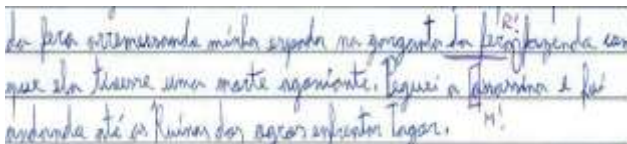 da fera arremessando minha espada na garganta da fera, fazendo com
que ela tivesse uma morte agoniante. Peguei a assassina e fui
andando até as Ruinas dos ogros enfrentar Lagar.